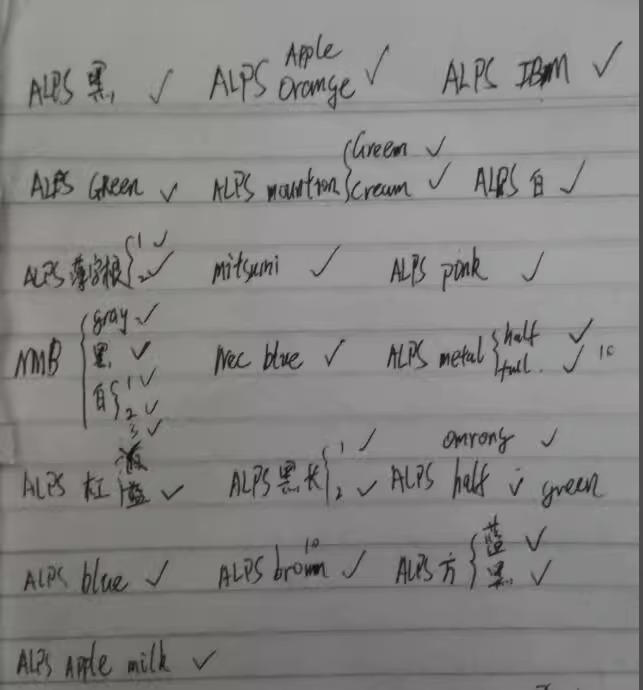 ALPS 黑 ✓ ALPS Apple Orange ✓ ALPS IBM ✓
ALPS Green ✓ ALPS mountion { Greem ✓ cream ✓ ALPS 白 ✓
ALPS 薄字根 { 1 ✓ 2 ✓ mitsumi ✓ ALPS pink ✓
NMB { gray ✓ 黑 ✓ 白 { 1 ✓ 2 ✓ 3 ✓ Nec blue ✓ ALPS metal { half ✓ full. ✓ 10
ALPS ✓ ALPS 黑长 { 1 ✓ 2 ✓ omrong ✓
ALPS half ✓ green
ALPS blue ✓ ALPS brown 10 ✓ ALPS 方 { 蓝 ✓ 黑 ✓
ALPS Apple milk ✓